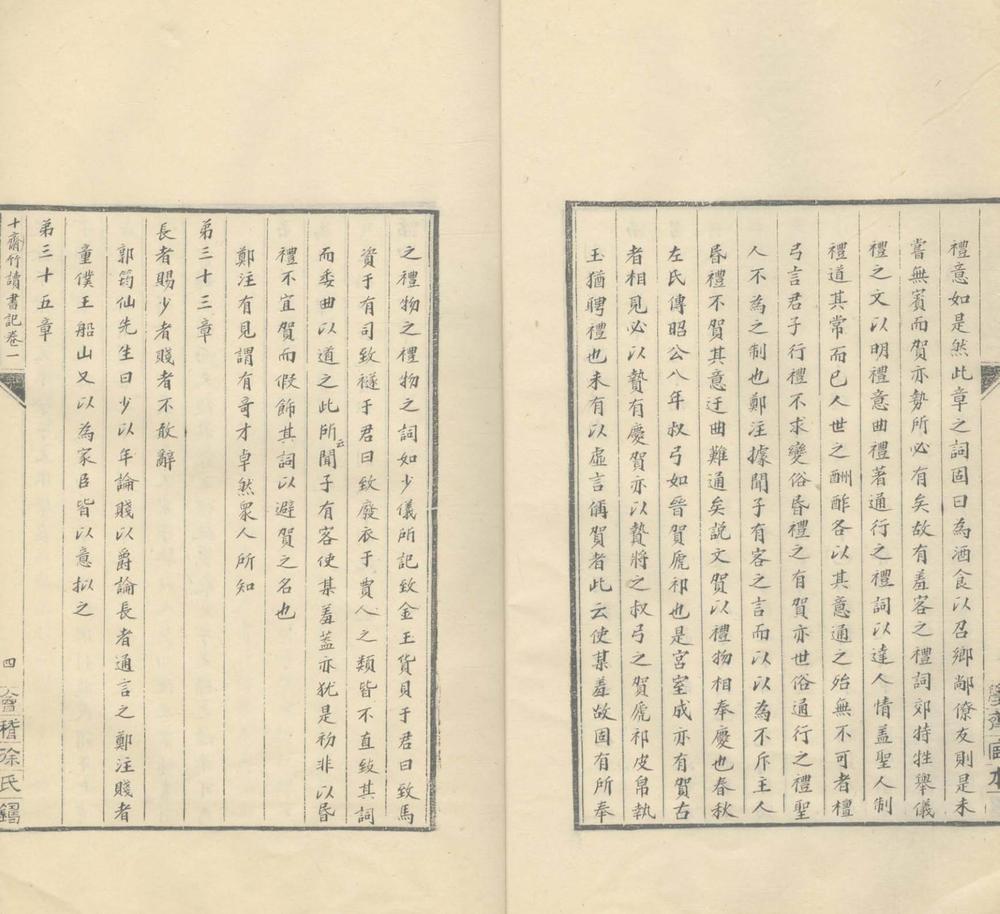 禮意如是然此章之詞固曰為酒食以召鄉鄰僚友則是未
嘗無賓而賀亦勢所必有矣故有羞客之禮詞郊特牲舉儀
禮之文以明禮意曲禮著通行之禮詞以達人情蓋聖人制
禮道其常而已人世之酬酢各以其意通之殆無不可者檀
弓言君子行禮不求變俗昏禮之有賀亦世俗通行之禮聖
人不為之制也鄭注據聞子有客之言而以以為不斥主人
昏禮不賀其意迂曲難通矣說文賀以禮物相奉慶也春秋
左氏傳昭公八年叔弓如晉賀虒祁也是宮室成亦有賀古
者相見必以贄有慶賀亦以贄將之叔弓之賀虒祁皮帛執
玉猶聘禮也未有以虛言稱賀者此云使某羞故固有所奉
之禮物之禮物之詞如少儀所記致金玉貨貝于君曰致馬
資于有司致襚于君曰致廢衣于賈人之類皆不直致其詞
而委曲以道之此所云聞子有客使某羞蓋亦猶是初非以昏
禮不宜賀而假飾其詞以避賀之名也
鄭注有見謂有奇才卓然眾人所知
第三十三章
長者賜少者賤者不敢辭
郭筠仙先生曰少以年論賤以爵論長者通言之鄭注賤者
童僕王船山又以為家臣皆以意擬之
第三十五章
十齋竹讀書記卷一
四
會稽徐氏鑄